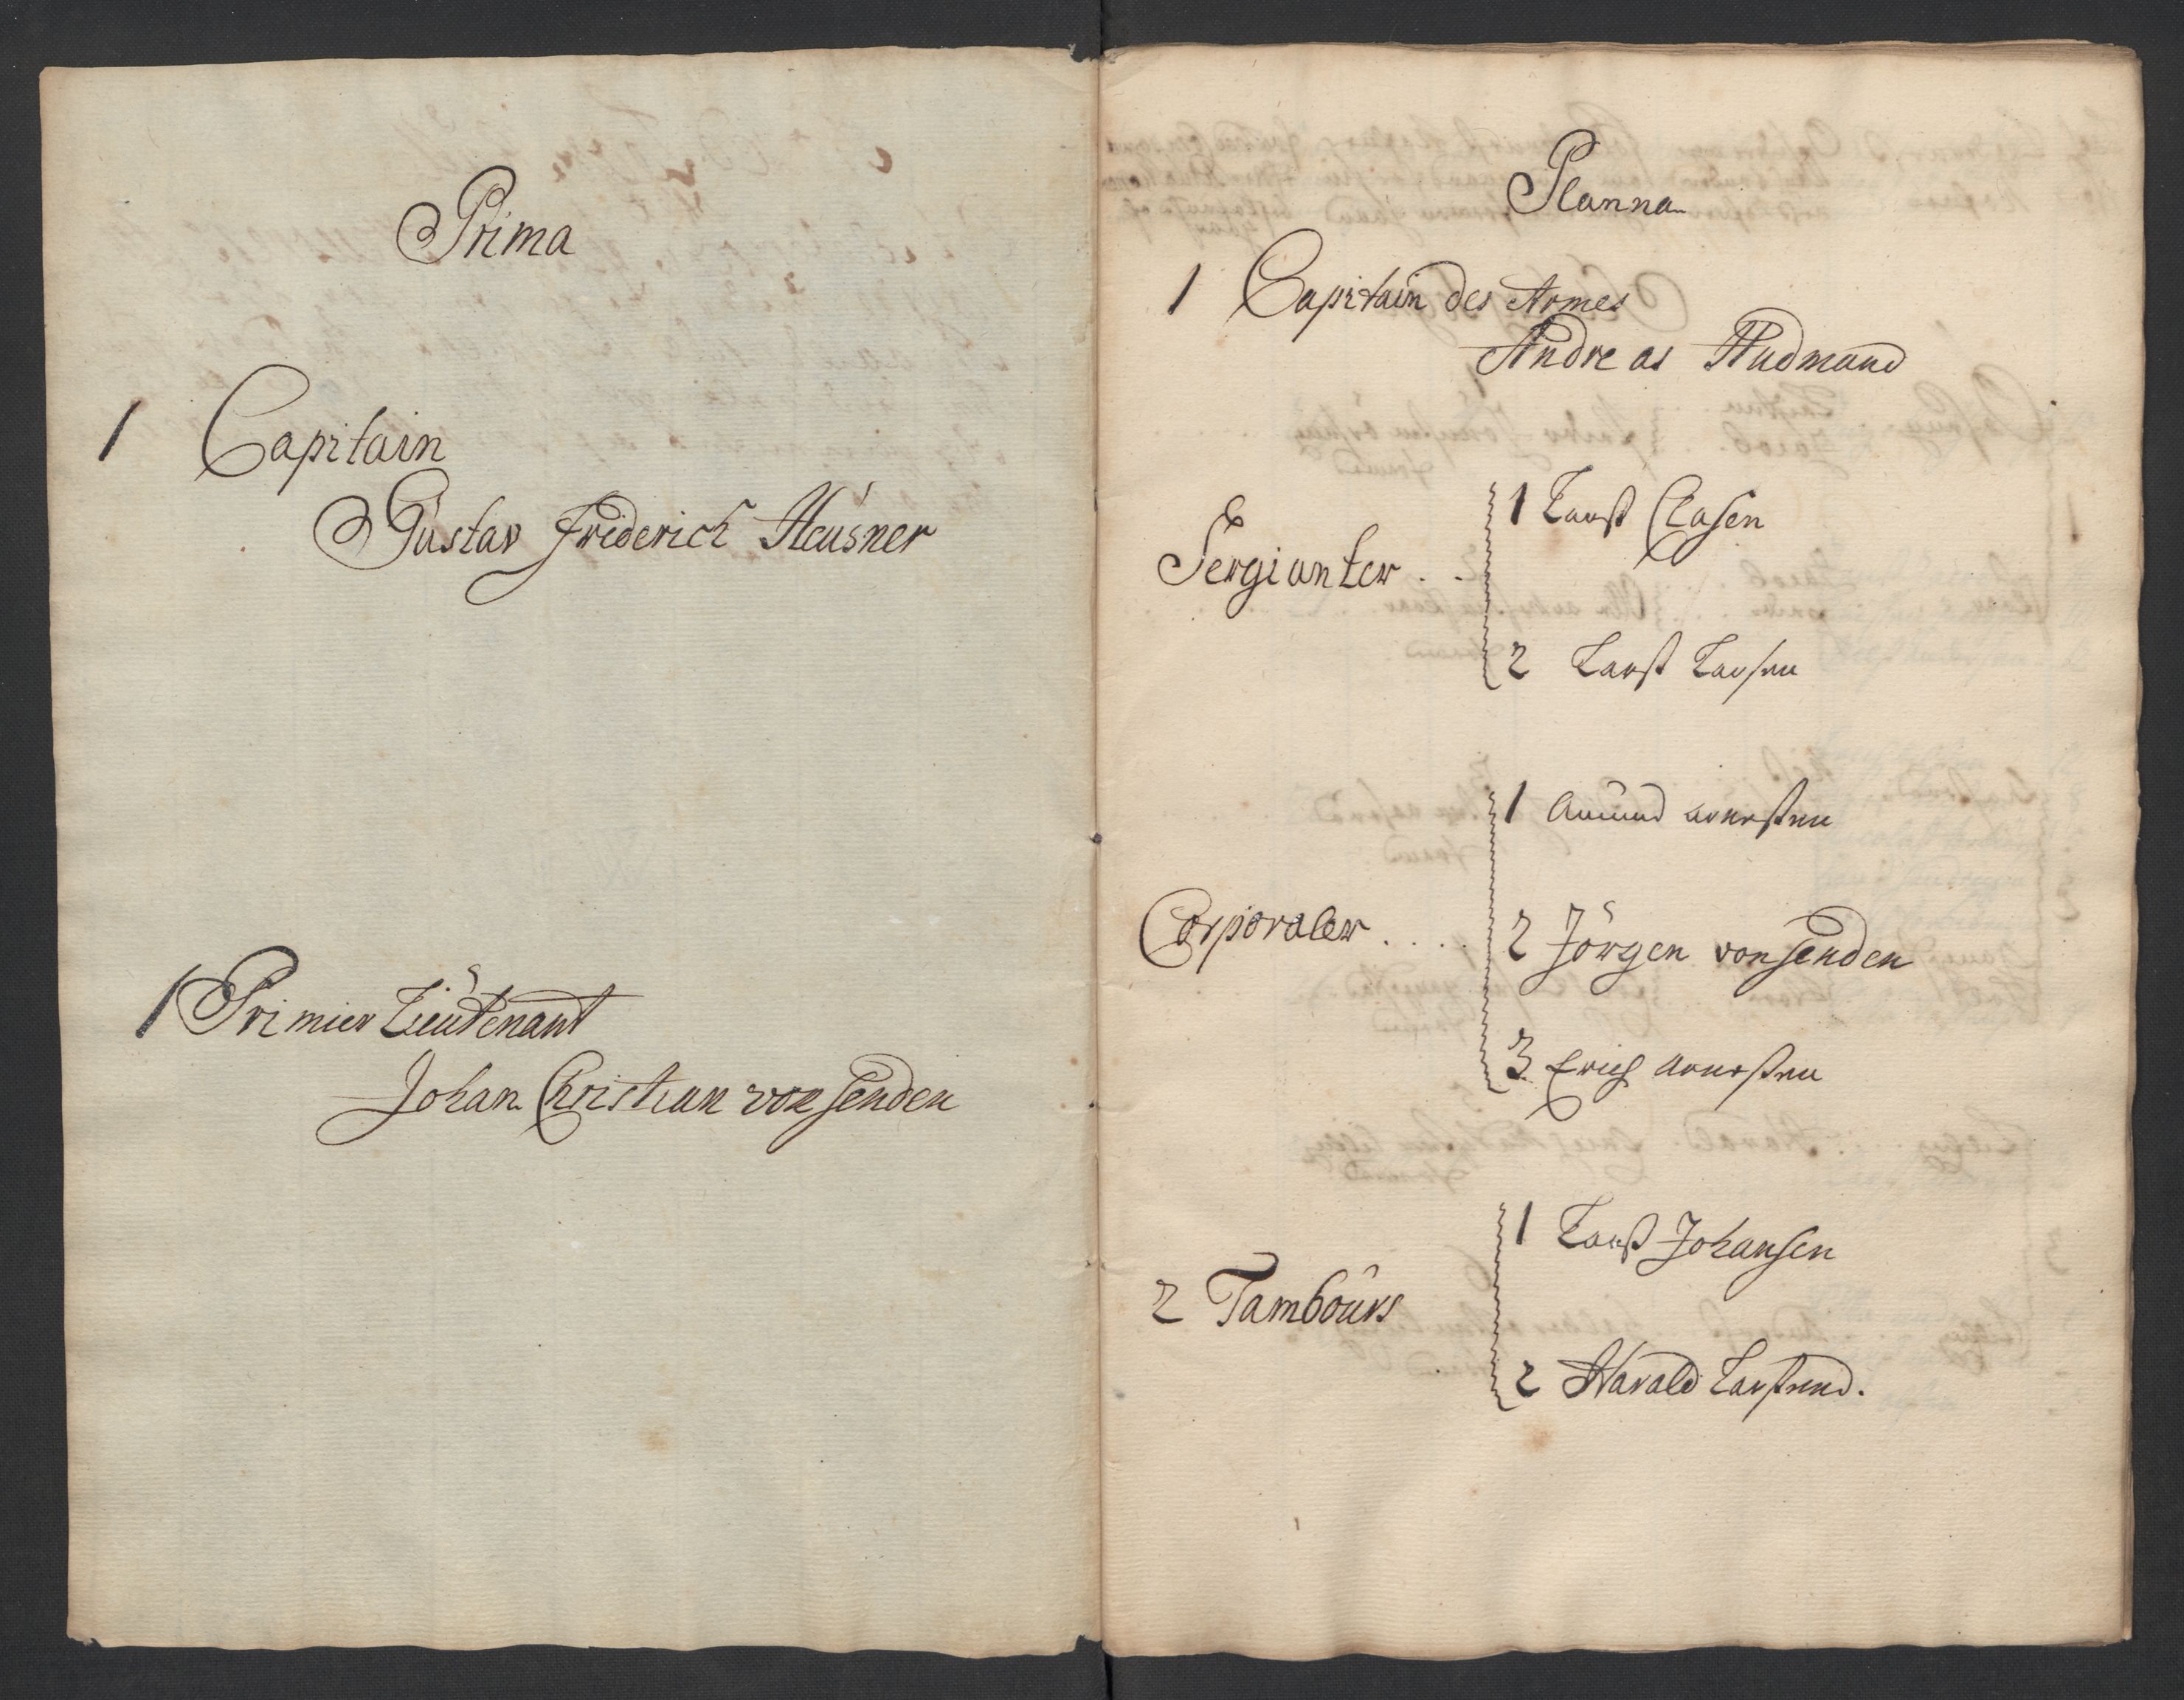 Prima
1 Capitain
Gustav Friderich Heusner
1 Primier Lieutenant
Johan Christian von Senden
Planna
1 Capitain des Armes
Andreas Hudmand
Sergianter . .
1 Larsß Clasen
2 Larsß Larsen
Corporaler . . . .
1 Amund
2 Jörgen von Senden
3 Erich
2 Tambours
1 Larsß Johansen
2 Harald